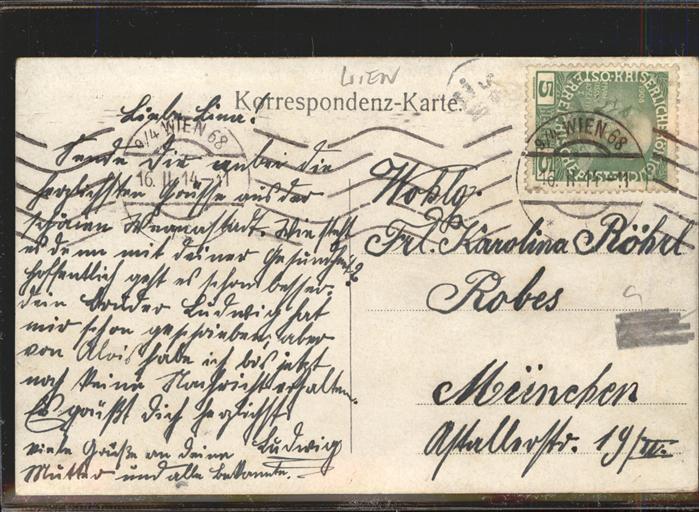 WIEN
Korrespondenz-Karte.
Liebe Lina!
Sende Dir anbei die
herzlichsten Grüsse aus der
schönen Wienerstadt. Wie steht
es denn mit deiner Gesundheit?
hoffentlich geht es schon besser.
dein Bruder Ludwig hat
mir schon geschrieben, aber
von Alois habe ich bis jetzt
noch keine Nachricht erhalten.
Es grüßt Dich herzlichst
Ludwig
viele Grüße an deine
Mutter und alle Bekannte.
9/4 WIEN 68
16. II. 14-11
5
1908
9/4 WIEN 68
Wohlg.
Frl. Karolina Röhrl
Robes
München
Astallerstr. 19/III.